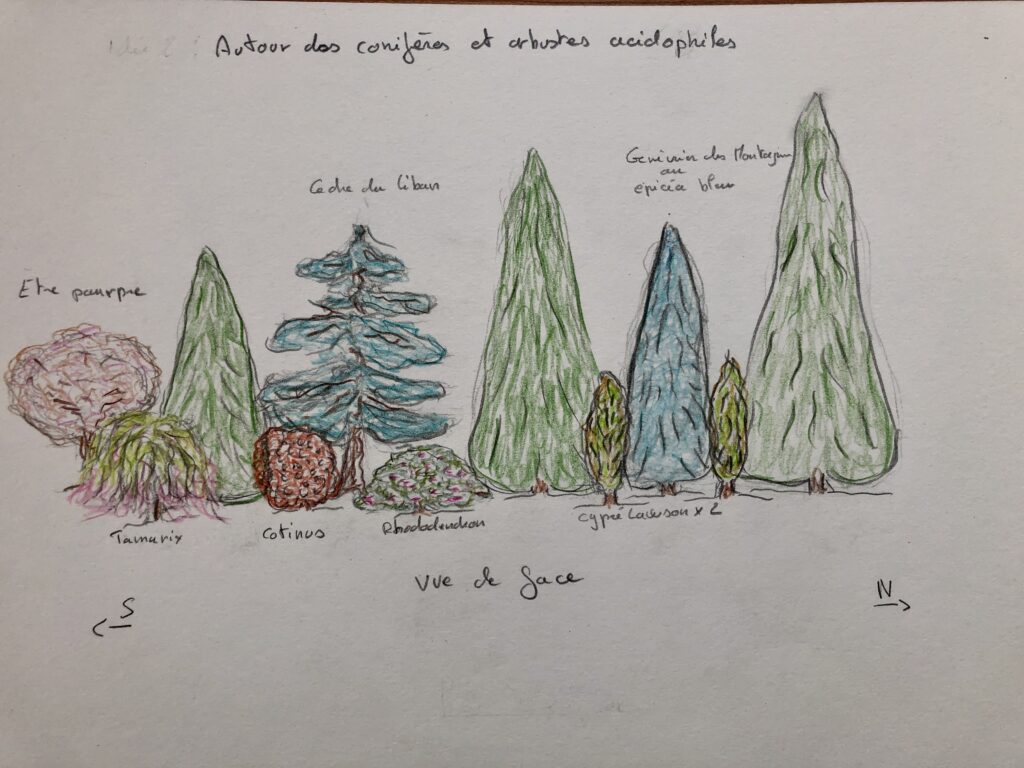 Autour des conifères et arbustes acidophiles
Cedre du Liban
Genévrier des Montagnes
ou
épicéa bleu
Etre pourpre
Tamarix
Cotinus
Rhododendron
Cyprè Lawson x 2
Vue de face
S
N